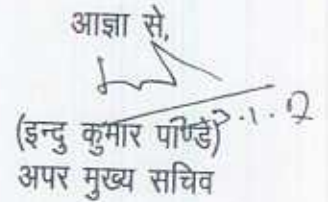 आज्ञा से,
(इन्दु कुमार पाण्डे)
अपर मुख्य सचिव